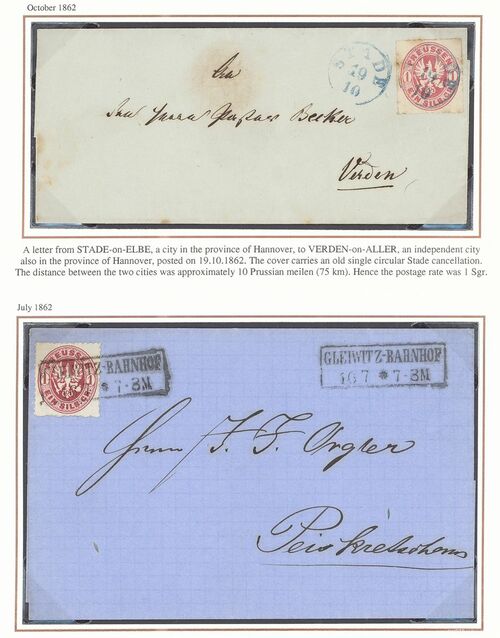 October 1862
STADE
19
10
PREUSSEN
1 1
EIN SILBERGR.
An
Herrn Pastor Becker
Verden
A letter from STADE-on-ELBE, a city in the province of Hannover, to VERDEN-on-ALLER, an independent city
also in the province of Hannover, posted on 19.10.1862. The cover carries an old single circular Stade cancellation.
The distance between the two cities was approximately 10 Prussian meilen (75 km). Hence the postage rate was 1 Sgr.
July 1862
PREUSSEN
1 1
EIN SILBERGR.
GLEIWITZ-BAHNHOF
7-8M
GLEIWITZ-BAHNHOF
16 7 * 7-8M
Herrn J. J.
Peiskretscham